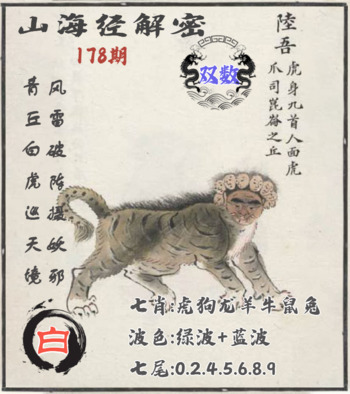 山海经解密
178期
双数
陸吾
虎身九首人面虎
爪司崑崙之丘
风雷破阵摄妖邪
青丘白虎巡天境
七肖:虎狗龙羊牛鼠兔
波色:绿波+蓝波
七尾:0.2.4.5.6.8.9
白